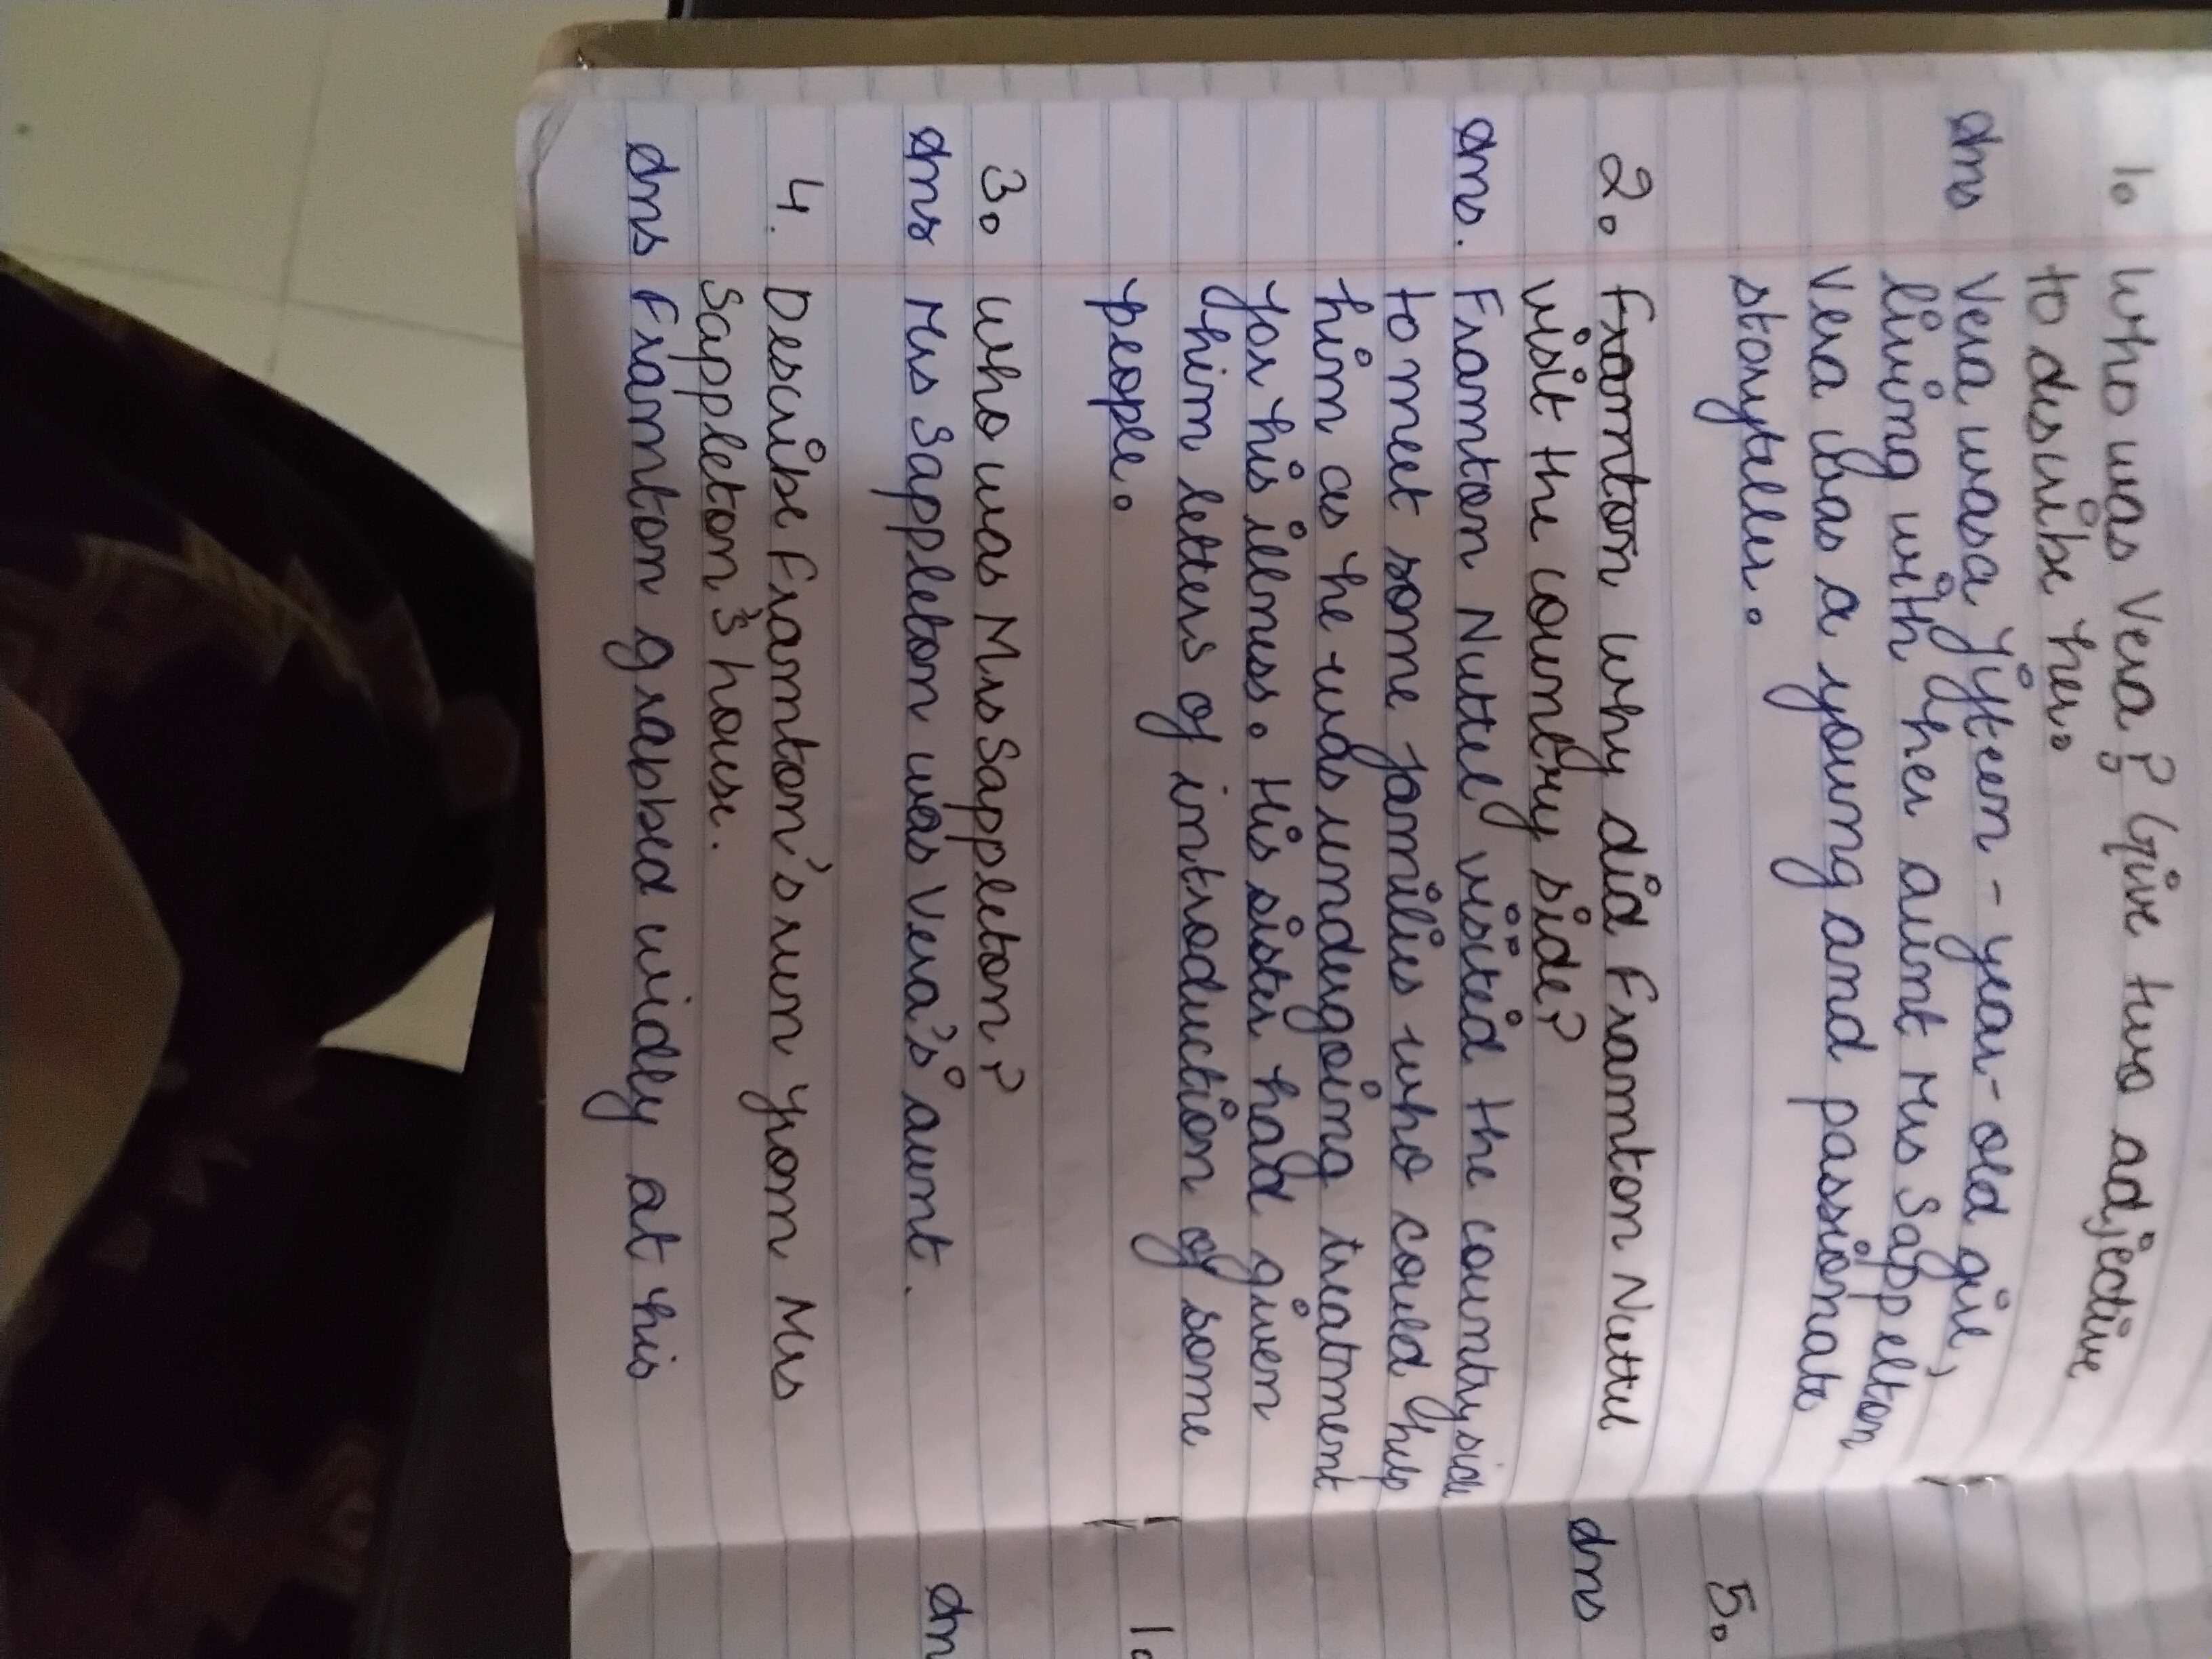 1. Who was Vera? Give two adjective
to describe her.
Ans Vera was a fifteen-year-old girl,
living with her aunt Mrs Sappelton
Vera was a young and passionate
storyteller.
2. Framton why did Framton Nuttel
visit the country side?
Ans. Framton Nuttel visited the countryside
to meet some families who could help
him as he was undergoing treatment
for his illness. His sister had given
him letters of introduction of some
people.
3. Who was Mrs Sappleton?
Ans Mrs Sappleton was Vera's aunt.
4. Describe Framton's run from Mrs
Sappleton's house.
Ans Framton grabbed widly at his
5.
Ans